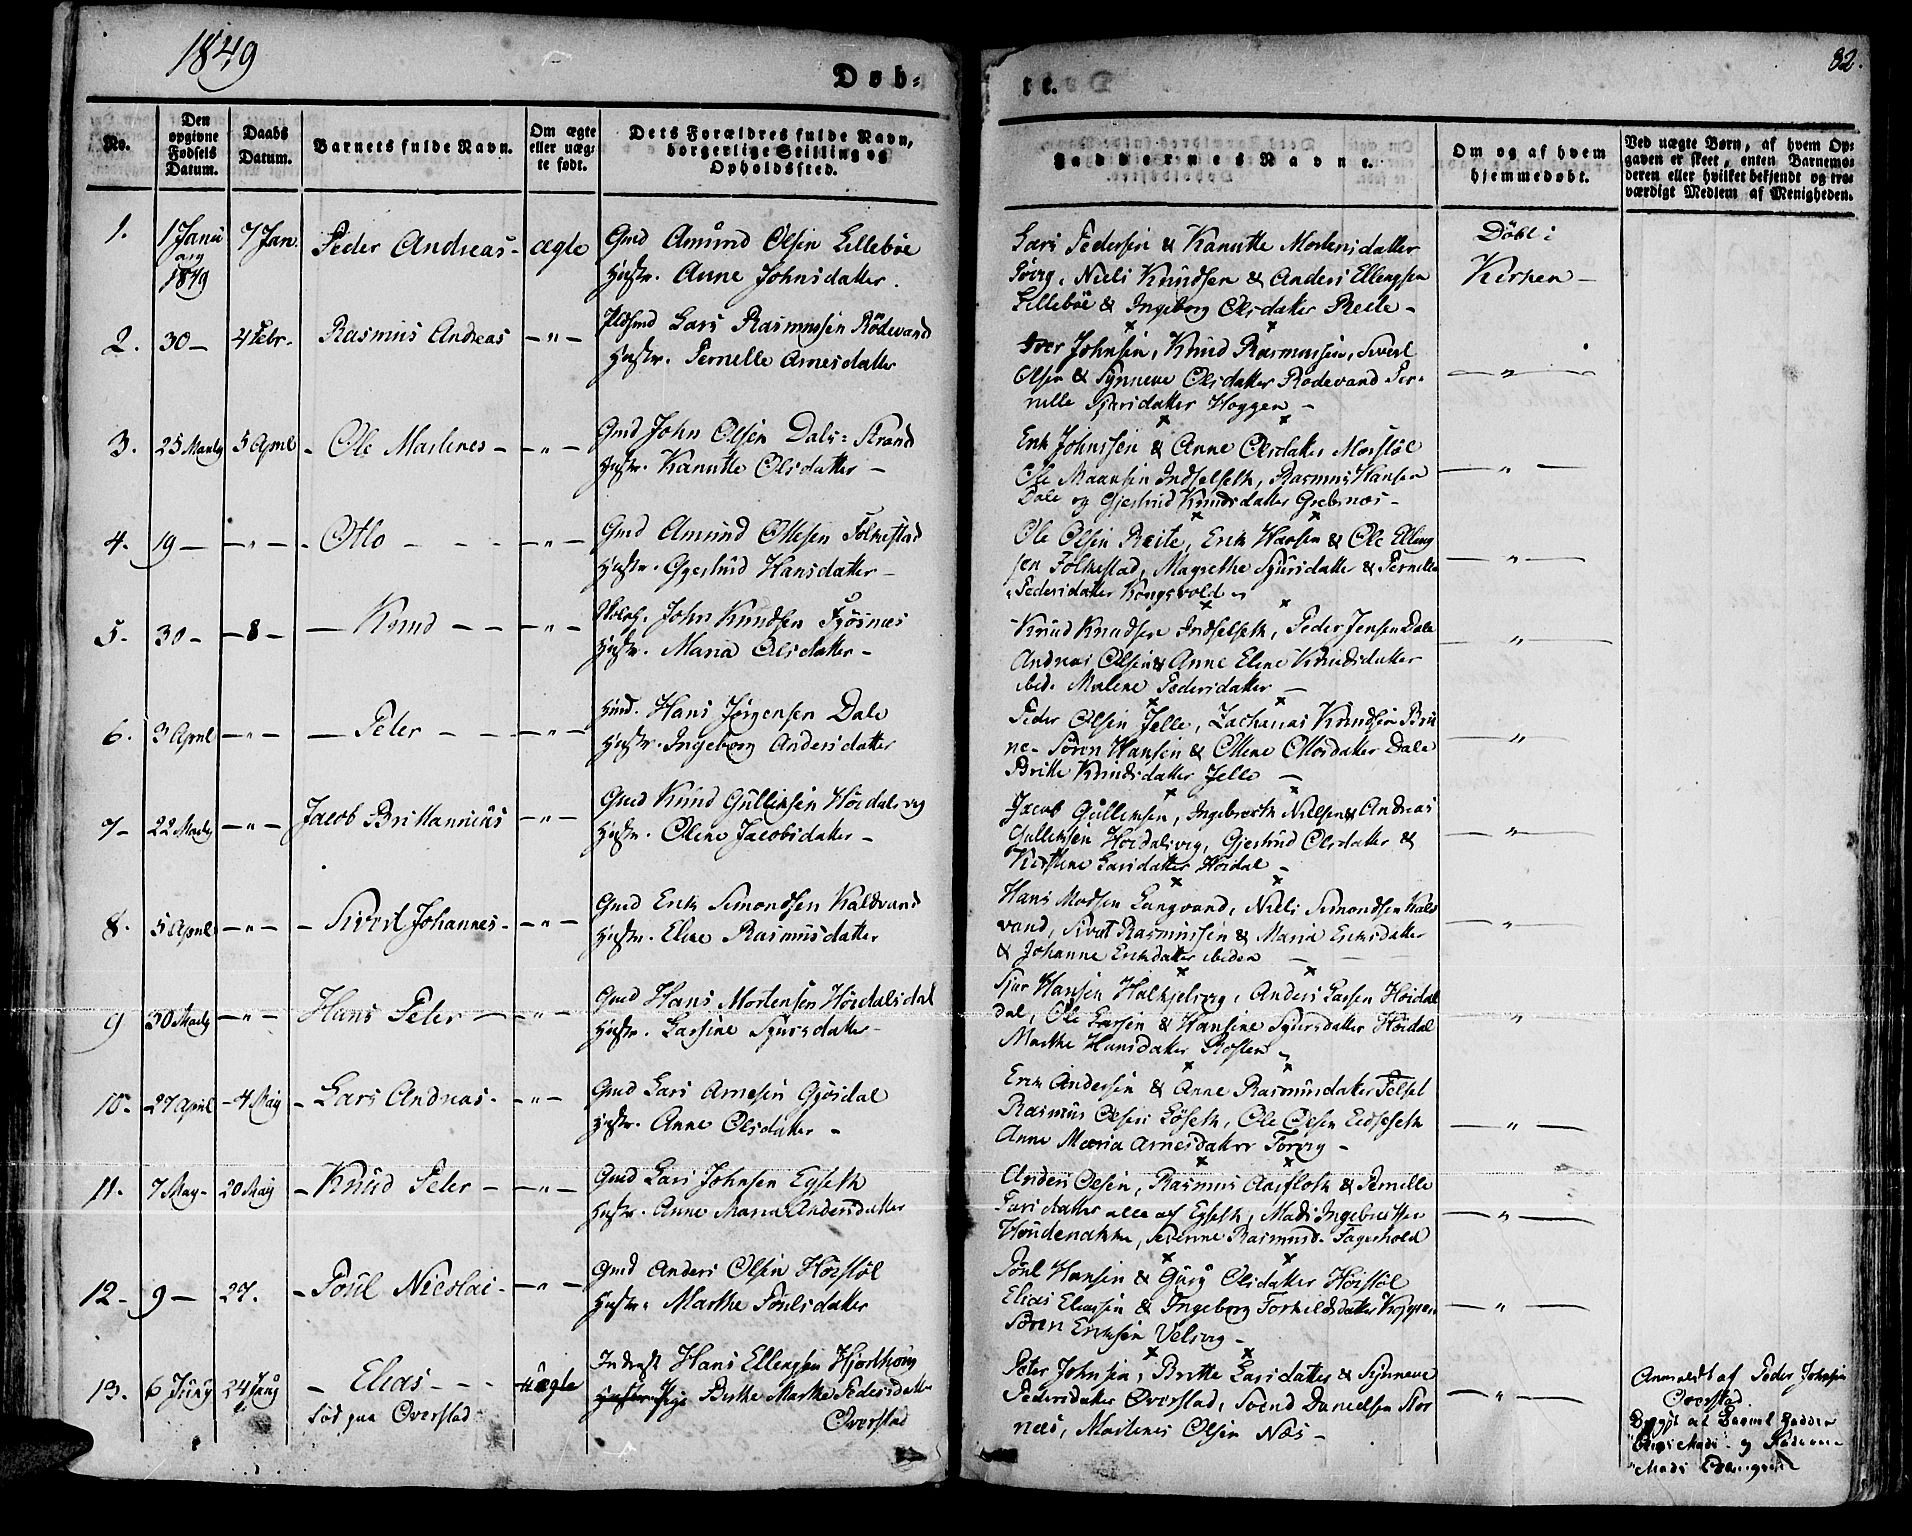 1849
Døb-
te.
82.
No.
Den opgivne Fødsels Datum.
Daabs Datum.
Barnets fulde Navn.
Om ægte eller uægte født.
Dets Forældres fulde Navn, borgerlige Stilling og Opholdssted.
Faddernes Navne.
Om og af hvem hjemmedøbt.
Ved uægte Børn, af hvem Opgaven er skeet, enten Barnemoderen eller hvilket bekjendt og troværdigt Medlem af Menigheden.
1. 1 Janu 7 Jan. Peder Andreas - ægte Gmd Amund Olsen Lillebøe
1849 Hustr. Anne Johnsdatter.
Lars Pedersen & Kanutte Mortensdatter
Niels Knudsen & Anders Ellingsen
Lillebøe & Ingeborg Olsdatter Reite -
Døbt i
Kirken -
2. 30 - 4 Febr. Rasmus Andreas - " - Lars Rasmussen Rødevand
Hustr. Pernelle Arnesdatter
Iver Johnsen, Knud Rasmussen, Sivert
Olsen & Synneve Olsdatter Rødevand Per-
nelle Sjursdatter Hoggen -
- " -
3. 25 Marty 5 April - Ole Martines - - " - Gmd John Olsen Dals-Strand
Hustr. Kanutte Olsdatter -
Erik Johnssen & Anne Olsdatter
Ole Indselseth, Rasmus Hansen
Dale og Gjertrud Knudsdatter Grebsnæs -
- " -
4. 19 - - " - - Otto - - - - " - Gmd Amund Ottesen Folkestad
Hustr. Gjertrud Hansdatter -
Ole Olsen Reite, Erik Hansen & Ole Elling
sen Folkestad, Magrethe Sjursdatter & Pernelle
Pedersdatter Kongsvold -
- " -
5. 30 - - 8 - - Knud - - - " - John Knudsen Fyøsnæs
Hustr. Maria Olsdatter -
Knud Knudsen Indselseth, Peder Jensen Dale
Andreas Olsen & Anne Eline Knudsdatter
ibid. Malene Pedersdatter -
"
6. 3 April - " - - Peter - - - " - Hans Jørgensen Dale
Hustr. Ingeborg Andersdatter
Peder Olsen Jelle, Zacharias Knudsen Bru
ne - Søren Hansen & Oline Olsdatter Dale
Britte Knudsdatter Jelle -
- " -
7 - 22 Marty - " - Jacob Brittannius - " - Gmd Knud Gulliksen Høidalsvig
Hustr. Oline Jacobsdatter -
Jacob Gulliksen, Ingebreth Nielsen & Andreas
Gulliksen Høidalsvig, Gjertrud Olsdatter &
Kirstine Larsdatter Høidal -
- " -
8. 5 April - " - - Sivert Johannes - - " - Gmd Erik Simondsen Kaldvand
Hustr. Eline Rasmusdatter
Hans Madsen Langvand, Niels Simondsen Kald
vand, Sivert Rasmussen & Maria Eriksdatter
& Johanne Eriksdatter ibidem -
- " -
9 30 Marty - " - Hans Peter - - " - Gmd Hans Mortensen Høidalsdal
Hustr. Larsine Sjursdatter -
Sjur Hansen Halkjelsvig, Anders Larsen Høidal
dal, Ole Larsen & Hansine Sjursdatter Høidal
Marthe Hansdatter
"
10. 27 April - 4 May - Lars Andreas - - " - Gmd Lars Arnesen Gjøsdal
Hustr. Anne Olsdatter -
Erik Andersen & Anne Rasmusdatter
Rasmus Olsen Løseth, Ole Olsen Eidseth
Anne Maria Arnesdatter
- " -
11. 7 May - 20 May - Knud Peter - - " - Gmd Lars Johnsen Egseth
Hustr. Anne Maria Andersdatter
Anders Olsen, Rasmus Aarfloth & Pernille
Larsdatter alle af Egseth, Mads Ingebretsen
Severine Rasmusd.
- " -
12 - 9 - 27. - Poul Nicolai - - " - Gmd Anders Olsen Høistøl
Hustr. Marthe Poulsdatter
Poul Hansen & Gury Olsdatter Høistøl
Elias Eliassen & Ingeborg Torkildsdatter
Søren Eriksen Velsvig -
- " -
13. 6 Juny 24 Juny - Elias - - - uægte Hans Ellingsen Hjorthoug
Født paa Overstad Pige Berthe Marthe Pedersdatter
Overstad
Peter Johnsen, Britte Larsdatter & Synneve
Pedersdatter Overstad, Svend Danielsen Stor
næs, Martines Olsen Næs -
- " -
Anmeldt af Peder Johnsen
Overstad.